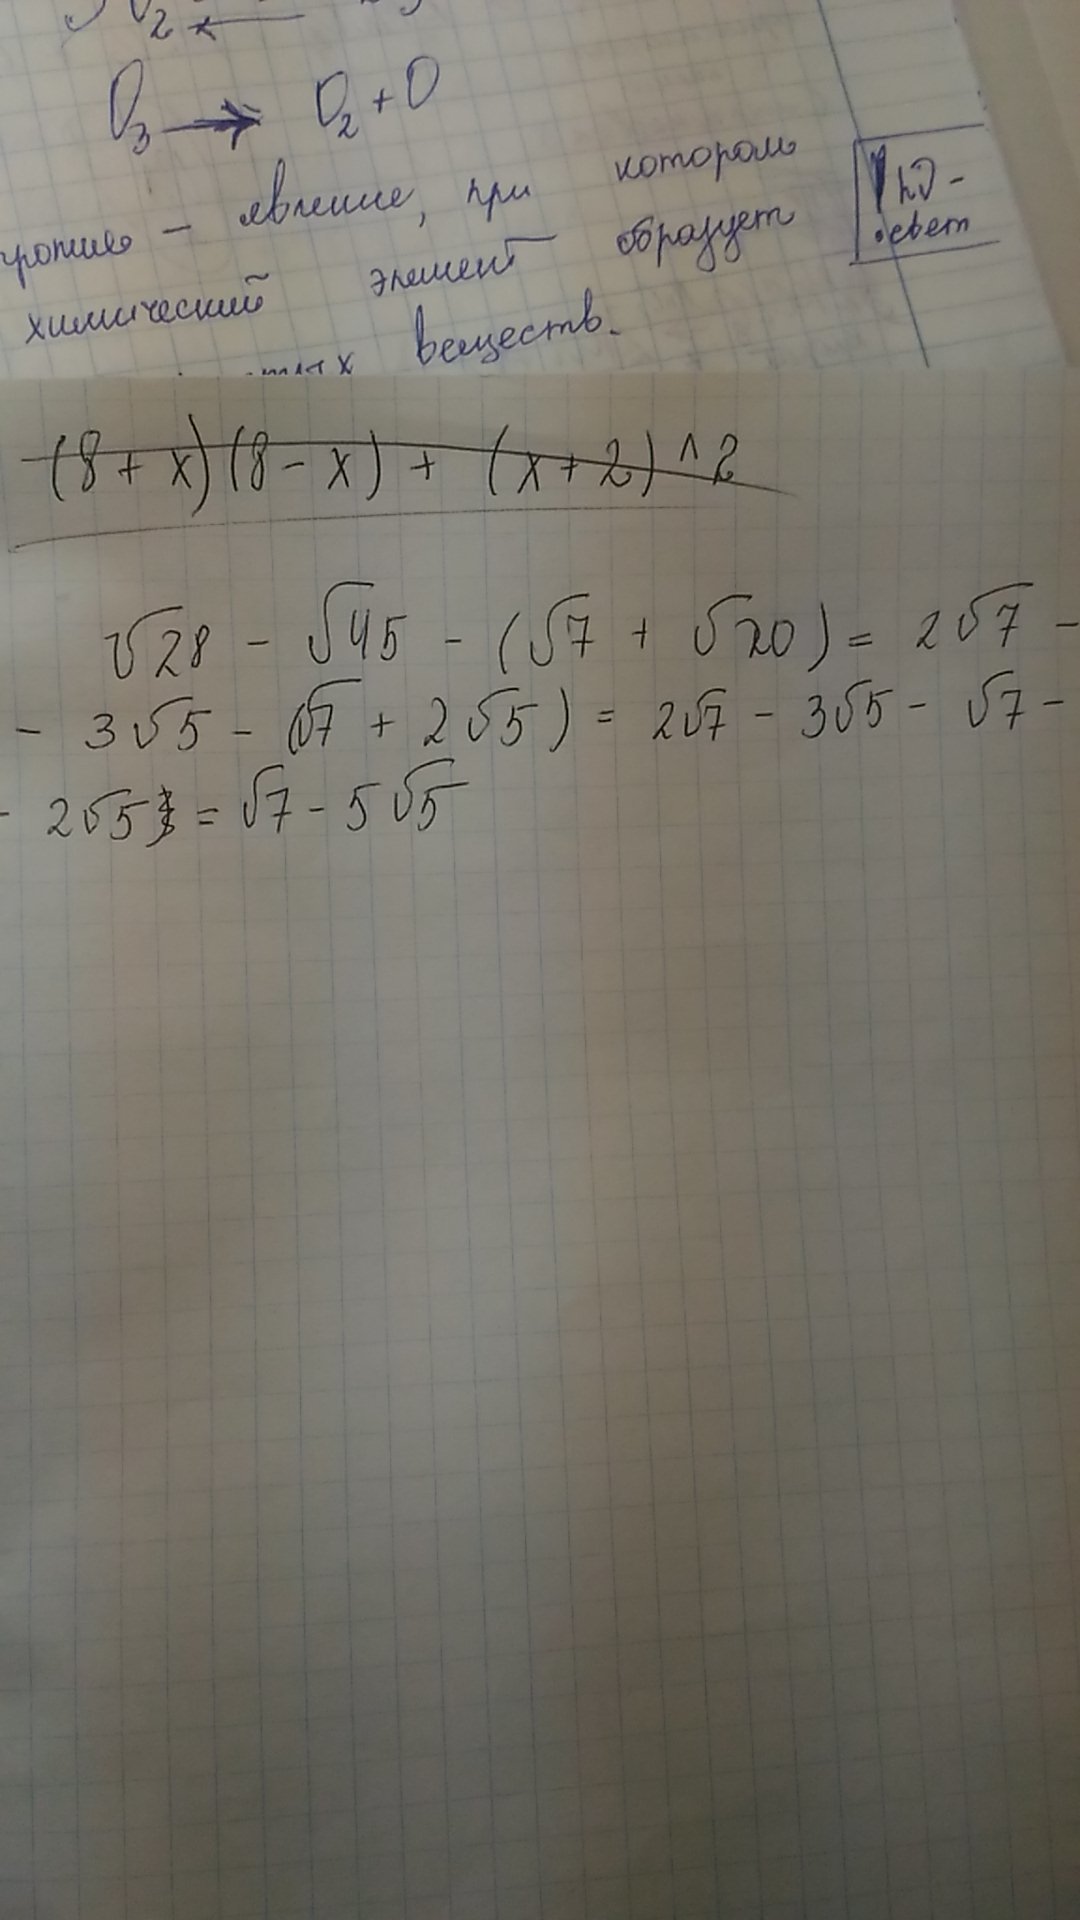 O₃ → O₂ + O
– явление, при котором
химический элемент образует
веществ.
hν –
свет
(8 + x)(8 – x) + (x + 2)^2
√28 – √45 – (√7 + √20) = 2√7 –
– 3√5 – (√7 + 2√5) = 2√7 – 3√5 – √7 –
– 2√5 = √7 – 5√5